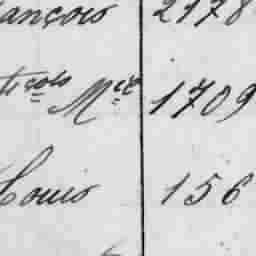 ançois 2178
ticols Mce 1709
Louis 156